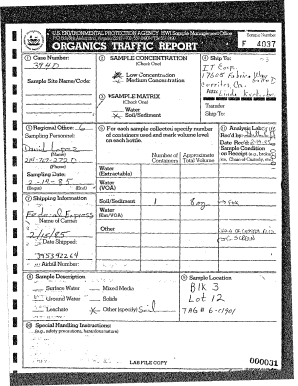 U.S. ENVIRONMENTAL PROTECTION AGENCY HWI Sample Management Office
ORGANICS TRAFFIC REPORT
Sample Number
F 4037
① Case Number:
394D
Sample Site Name/Code:
② SAMPLE CONCENTRATION
(Check One)
Low Concentration
Medium Concentration
③ SAMPLE MATRIX
(Check One)
Water
Soil/Sediment
④ Ship To:
IT Corp.
17605 Fabrica Way
Cerritos, Ca.
Attn:
Transfer
Ship To:
⑤ Regional Office: 6
Sampling Personnel:
David
(Name)
(Phone)
Sampling Date:
2-14-85
(Begin) (End)
⑥ For each sample collected specify number
of containers used and mark volume level
on each bottle.
Number of
Containers
Approximate
Total Volume
Water
(Extractable)
Water
(VOA)
Soil/Sediment 1 8oz
Water
(Ext/VOA)
Other
Date Rec'd:
Sample Condition
on Receipt (e.g., broken
ice, Chain-of-Custody, etc.)
⑦ Shipping Information
Federal Express
Name of Carrier
2/15/85
Date Shipped:
395342264
Airbill Number:
⑧ Sample Description
Surface Water
Mixed Media
Ground Water
Solids
Leachate
X Other (specify) Soil
⑨ Sample Location
Blk 3
Lot 12
TAG # 6-01901
⑩ Special Handling Instructions:
(e.g., safety precautions, hazardous nature)
LAB FILE COPY
000031